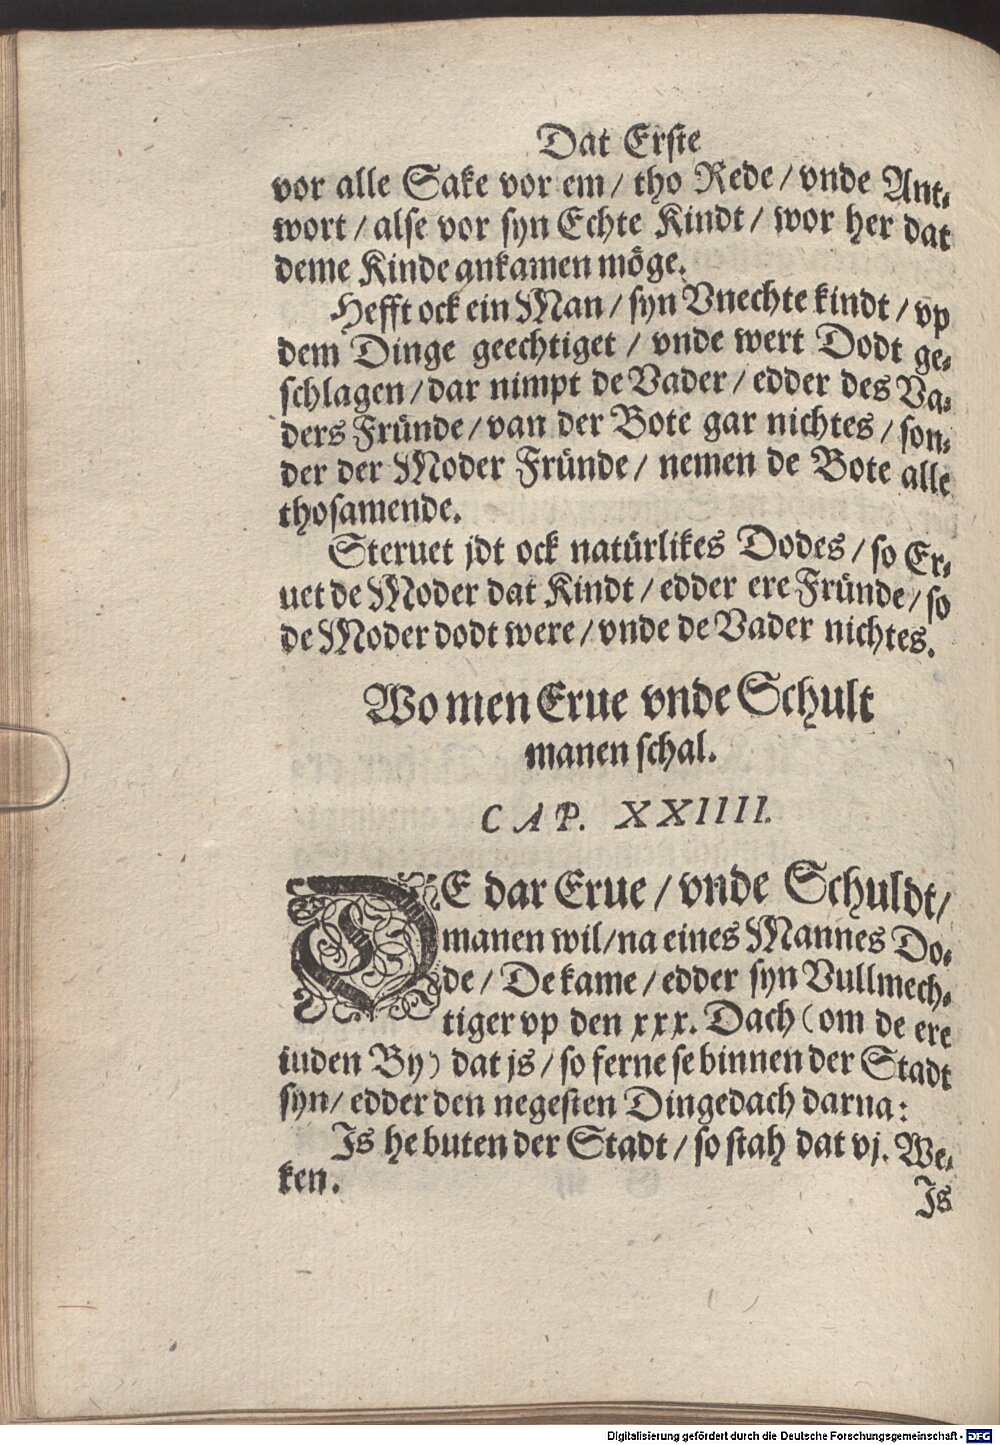 Dat Erste
vor alle Sake vor em / tho Rede / vnde Ant-
wort / alse vor syn Echte Kindt / wor her dat
deme Kinde ankamen möge.
Hefft ock ein Man / syn Vnechte kindt / vp
dem Dinge geechtiget / vnde wert Dodt ge-
schlagen / dar nimpt de Vader / edder des Va-
ders Fründe / van der Bote gar nichtes / son-
der der Moder Fründe / nemen de Bote alle
thosamende.
Steruet jdt ock natürlikes Dodes / so Er-
uet de Moder dat Kindt / edder ere Fründe / so
de Moder dodt were / vnde de Vader nichtes.
Wo men Erue vnde Schult
manen schal.
CAP. XXIIII.
DE dar Erue / vnde Schuldt /
manen wil / na eines Mannes Do-
de / De kame / edder syn Vullmech-
tiger vp den xxx. Dach (om de ere
iuden By) dat js / so ferne se binnen der Stadt
syn / edder den negesten Dingedach darna:
Js he buten der Stadt / so stah dat vj. We-
ken.
Js
Digitalisierung gefördert durch die Deutsche Forschungsgemeinschaft - DFG